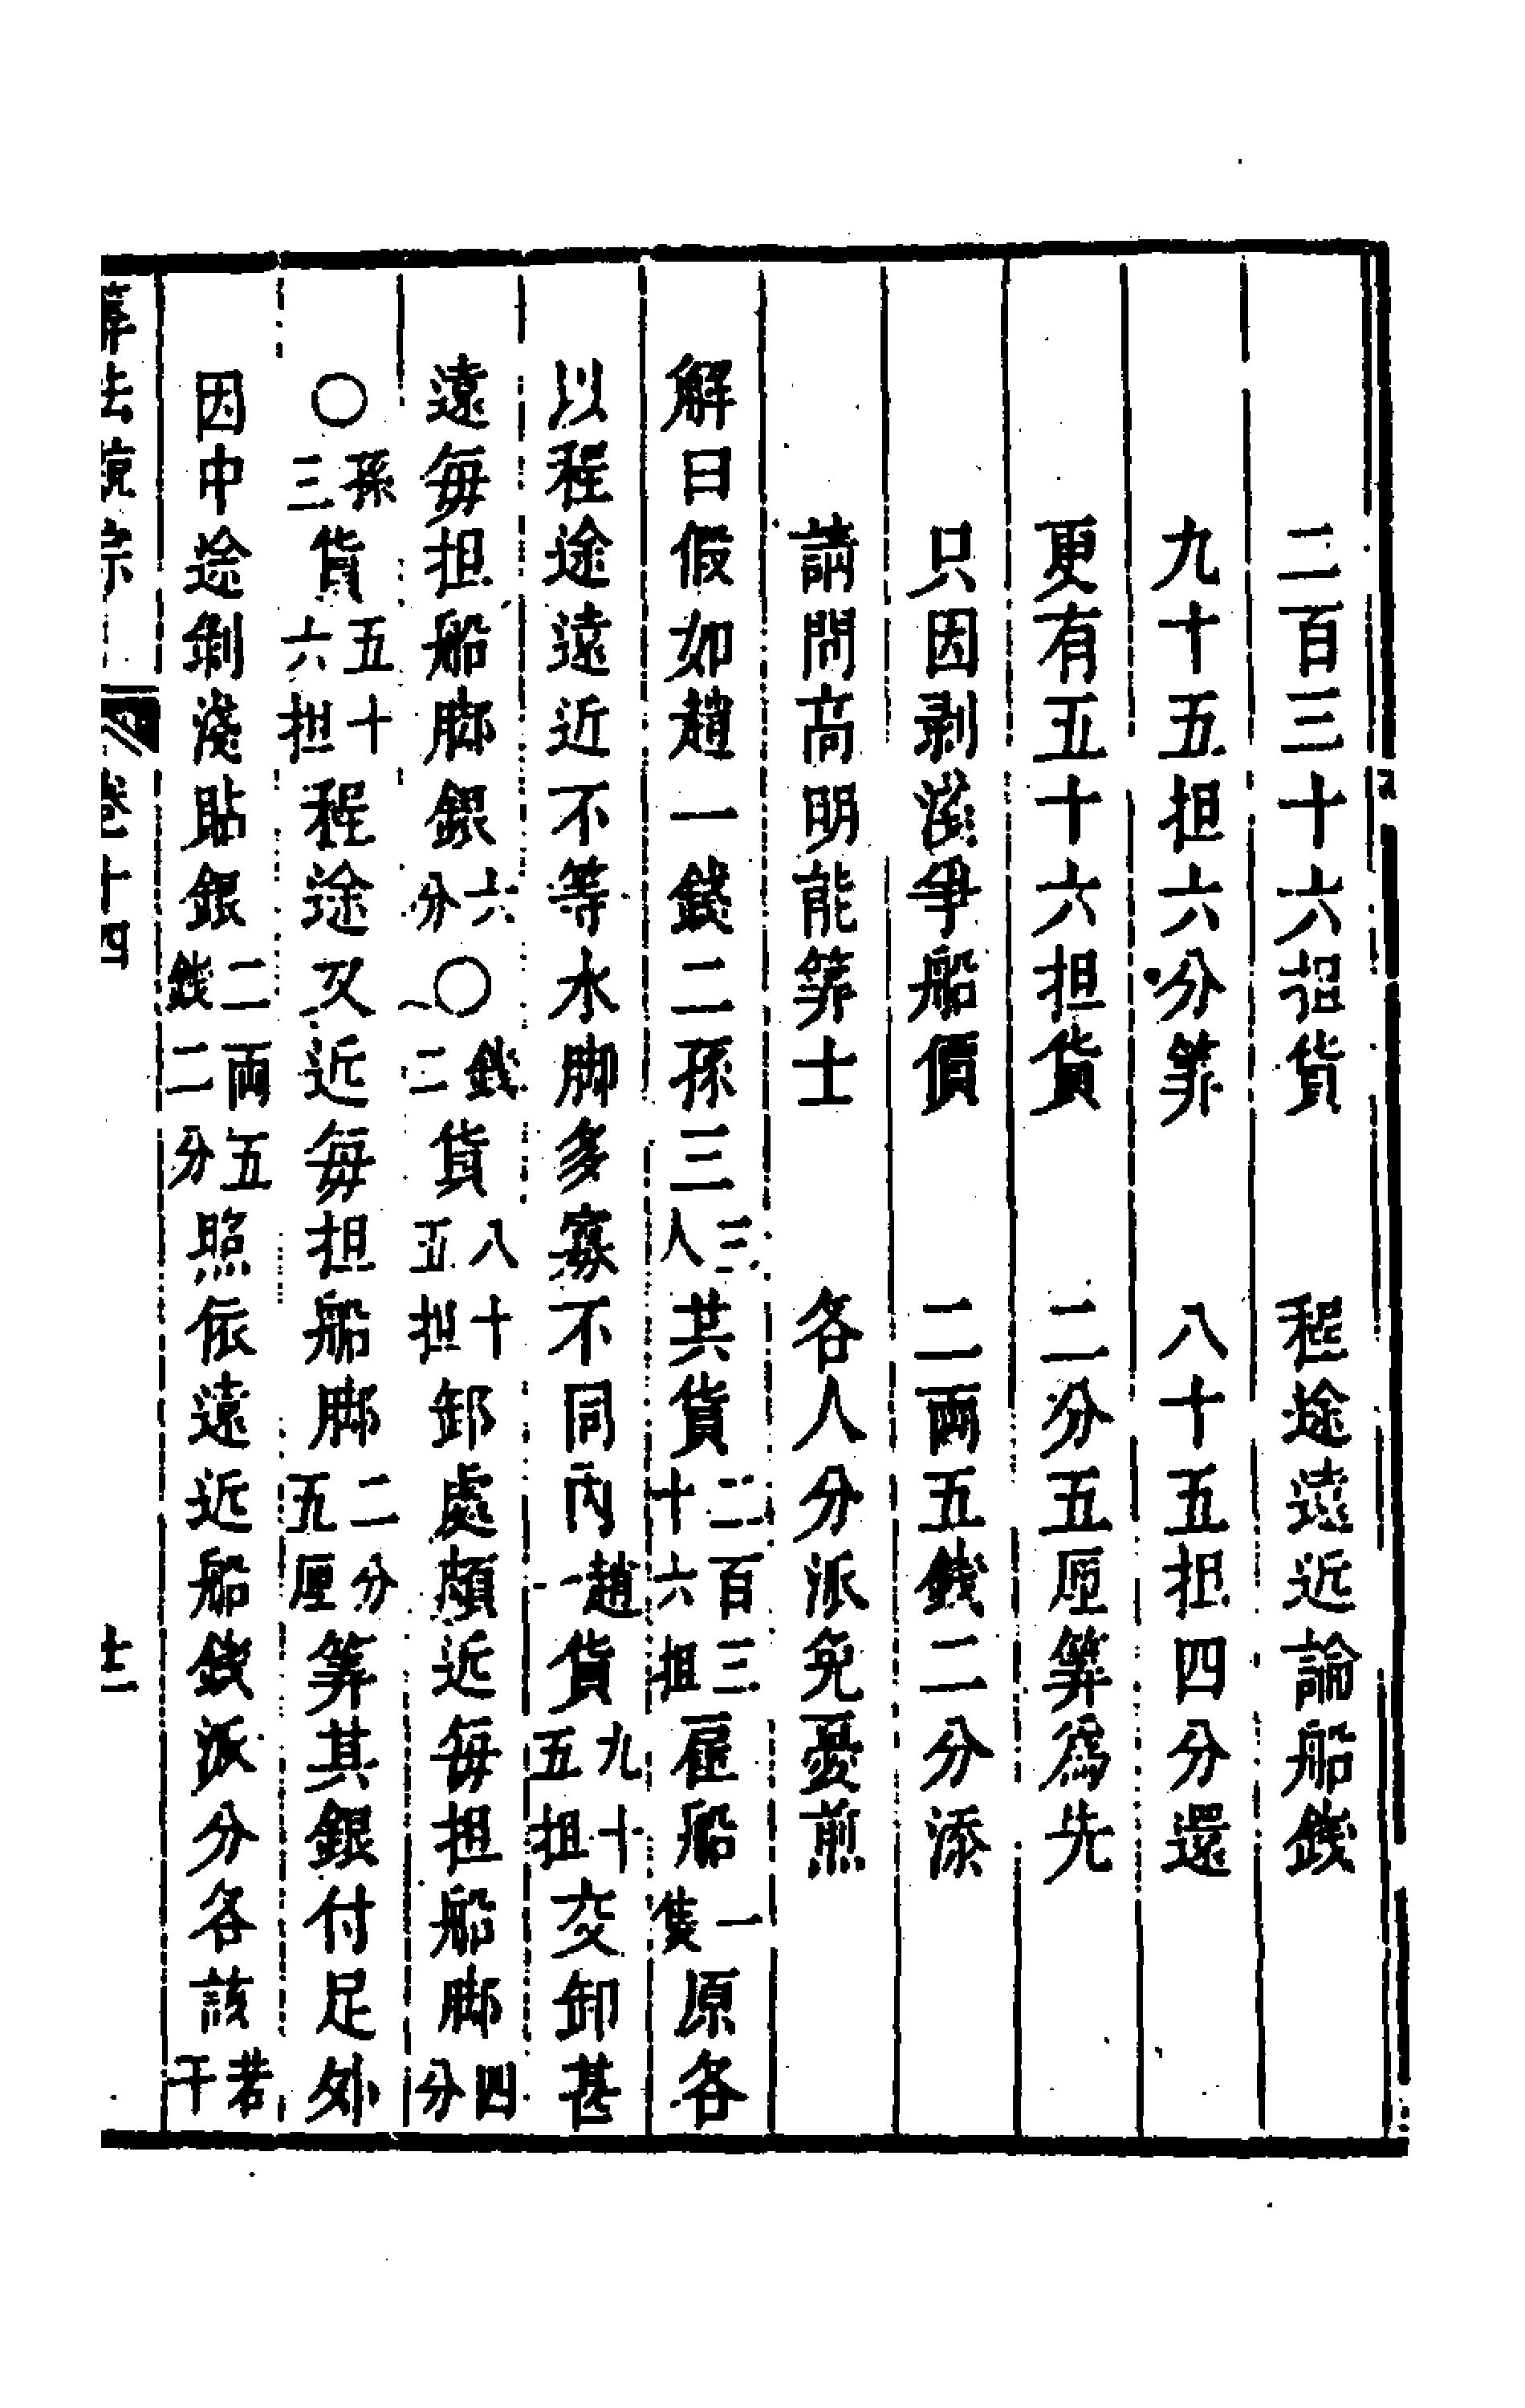 二百三十六担貨　程途遠近論船錢
九十五担六分筭　八十五担四分還
更有五十六担貨　二分五厘筭為先
只因剥淺爭船價　二兩五錢二分添
請問高明能筭士　各人分派免憂煎
解曰假如趙一錢二孫三三人共貨二百三十六担雇船一隻原各
以程途遠近不等水脚多寡不同內趙一貨九十五担交卸甚
遠每担船脚銀六分〇錢二貨八十五担卸處頗近每担船脚四分
〇孫三貨五十六担程途又近每担船脚二分五厘筭其銀付足外
因中途剝淺貼銀二兩五錢二分照依遠近船錢派分各該若干
算法統宗　卷十四　十二